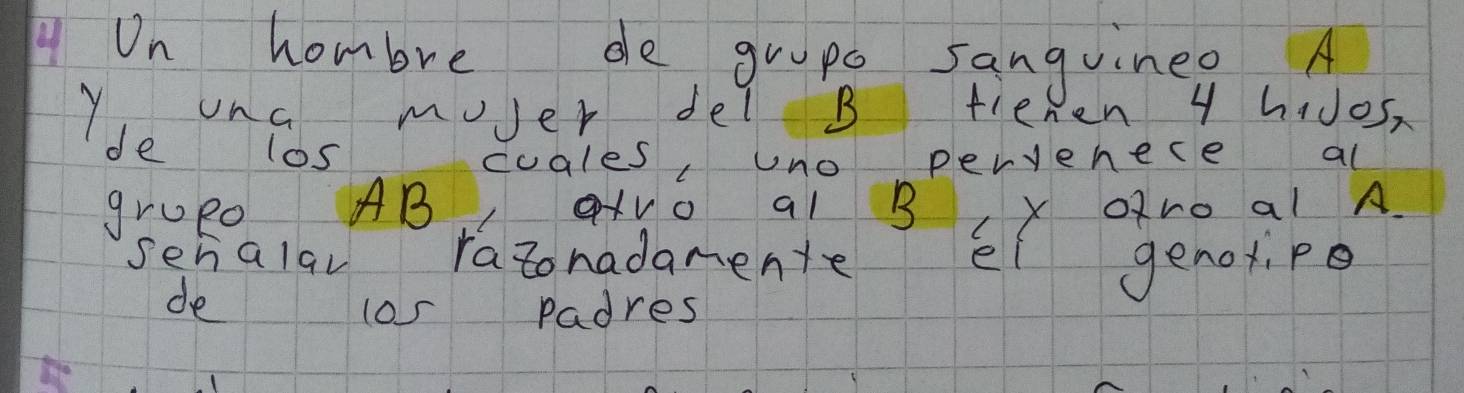 4 Un hombre de grupo sanguineo A
y una mujer del B tienen 4 hijos,
de los cuales, uno pertenece al
grupo AB, otro al B, y otro al A.
señalar razonadamente el genotipo
de los padres
5